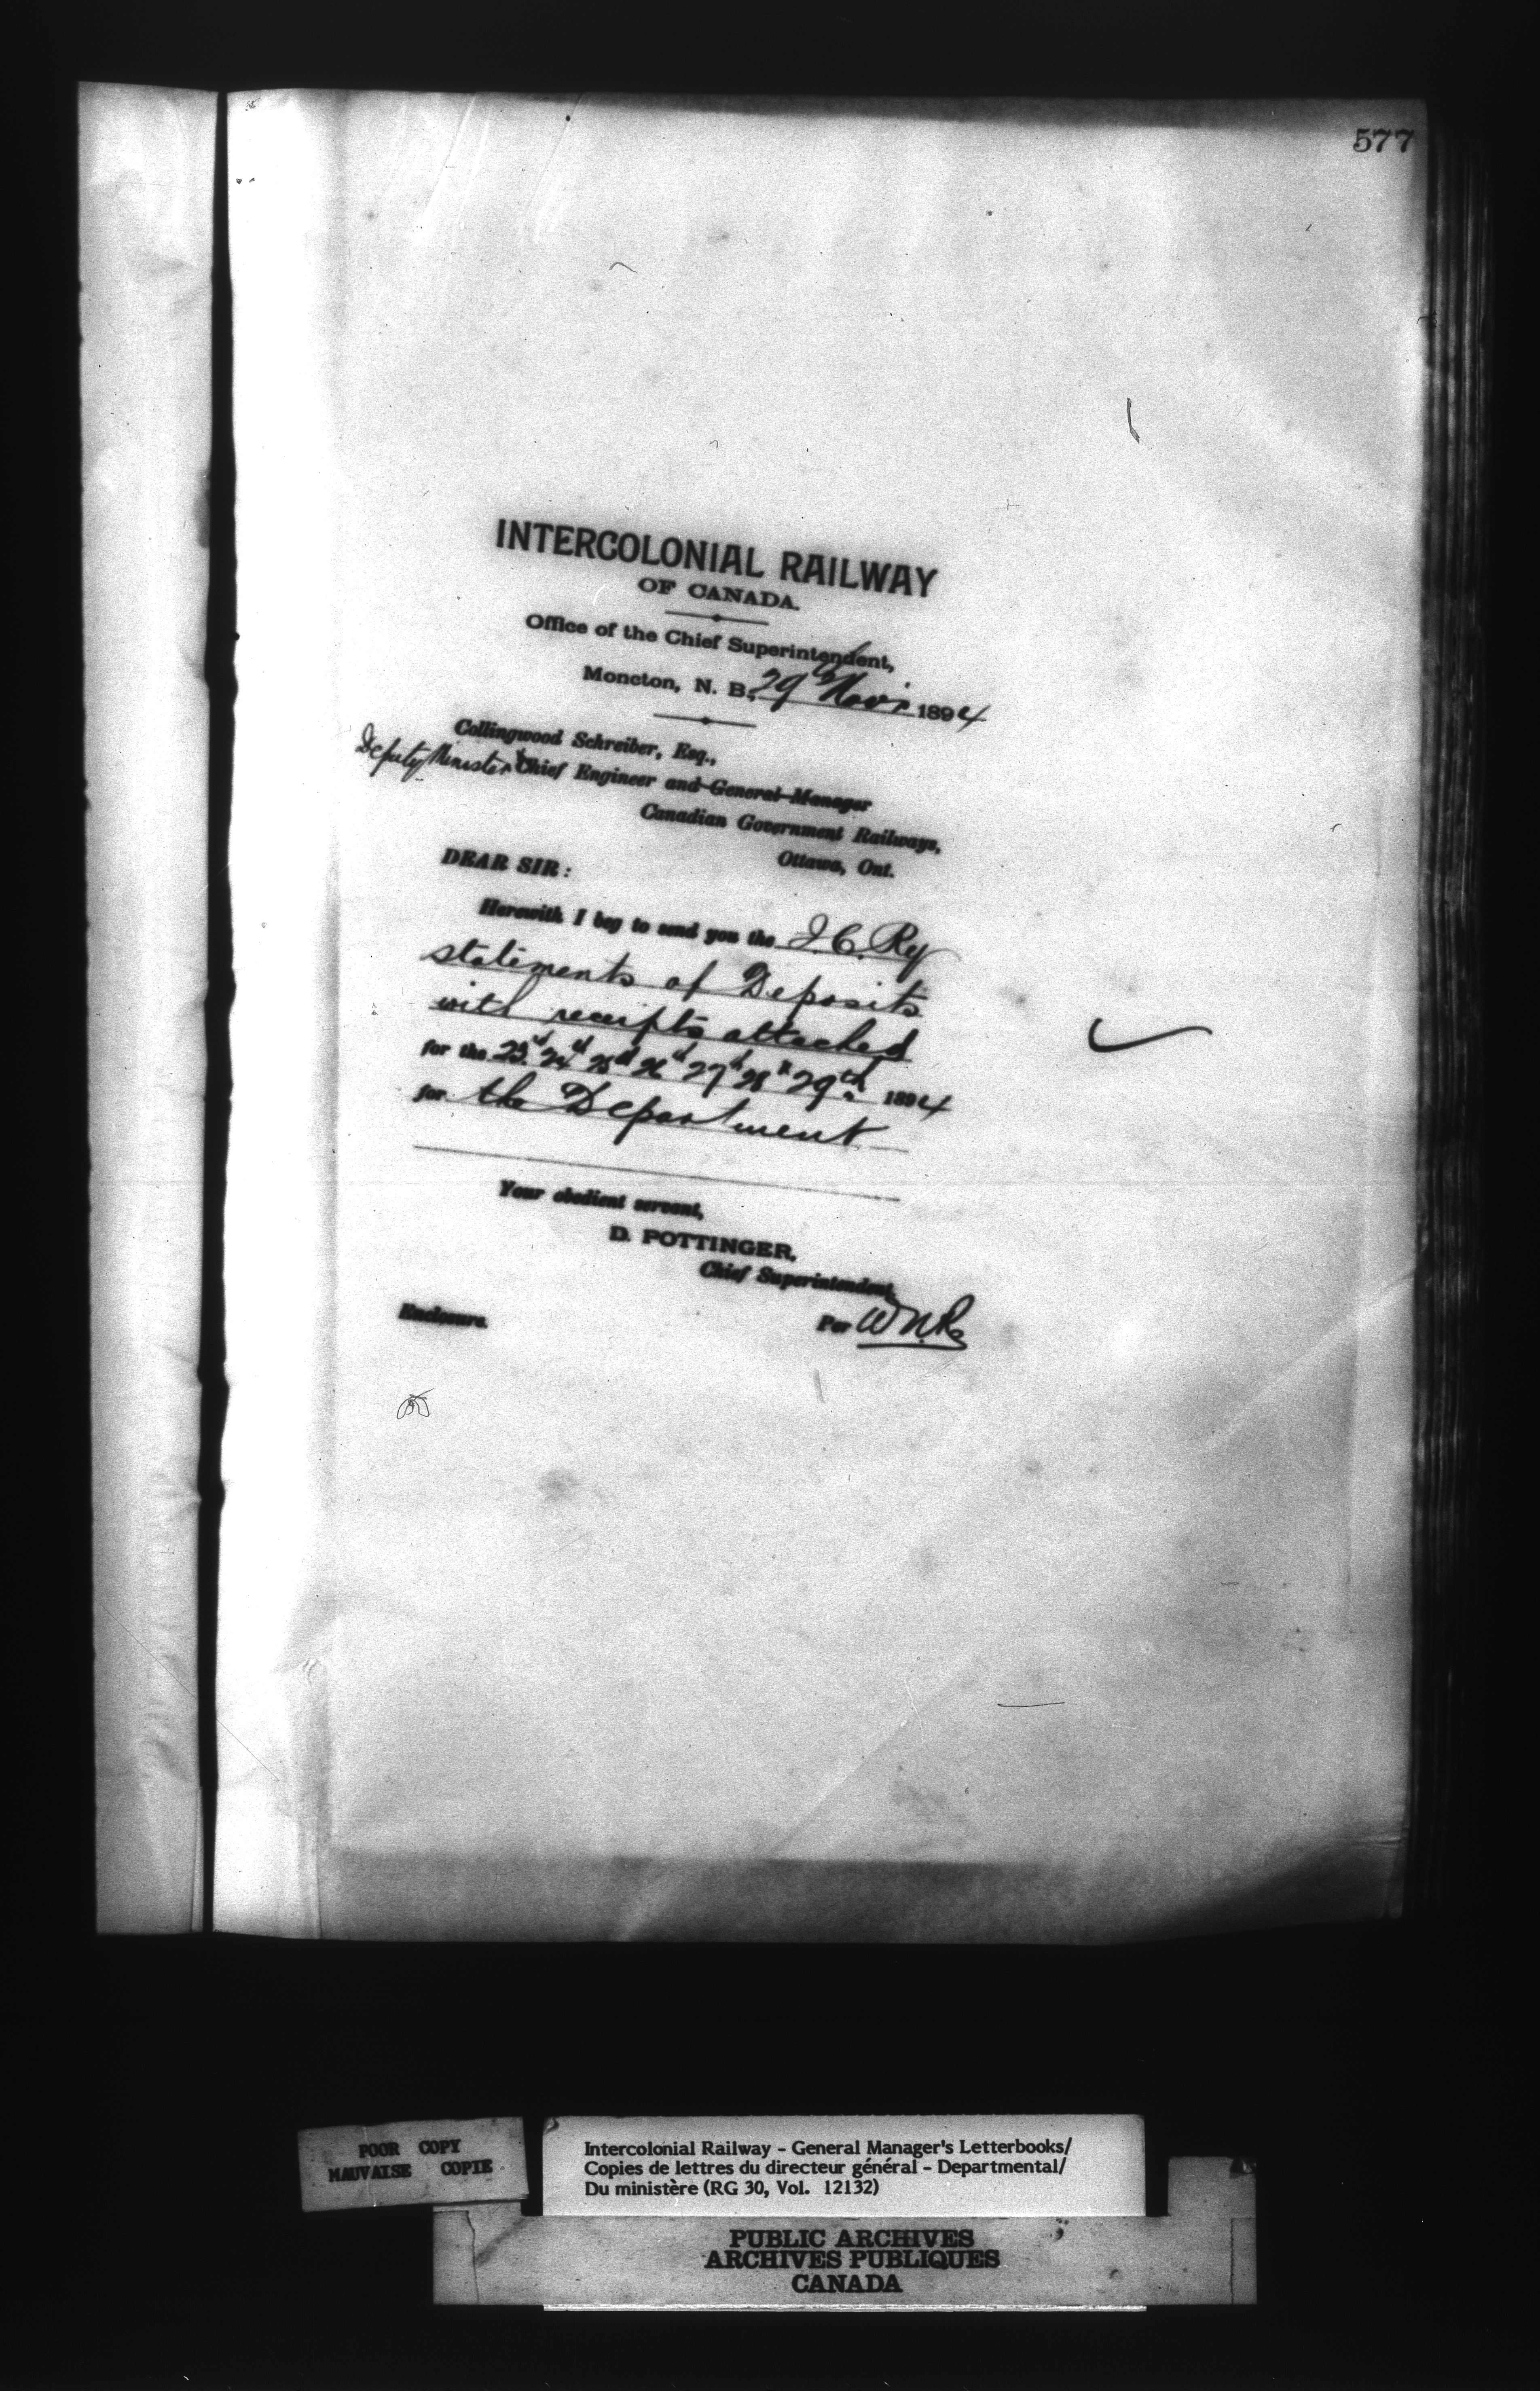 577
INTERCOLONIAL RAILWAY
OF CANADA.
Office of the Chief Superintendent,
Moncton, N. B., 29th Novr 1894
Collingwood Schreiber, Esq.,
Deputy Minister & Chief Engineer and General Manager
Canadian Government Railways,
Ottawa, Ont.
DEAR SIR:
Herewith I beg to send you the I. C. Ry
statements of Deposits
with receipts attached
for the 23rd 24th 25th 26th 27th 28th 29th 1894
for the Department
Your obedient servant,
D. POTTINGER,
Chief Superintendent,
Enclosure. Per
POOR COPY
MAUVAISE COPIE
Intercolonial Railway - General Manager's Letterbooks/
Copies de lettres du directeur général - Departmental/
Du ministère (RG 30, Vol. 12132)
PUBLIC ARCHIVES
ARCHIVES PUBLIQUES
CANADA